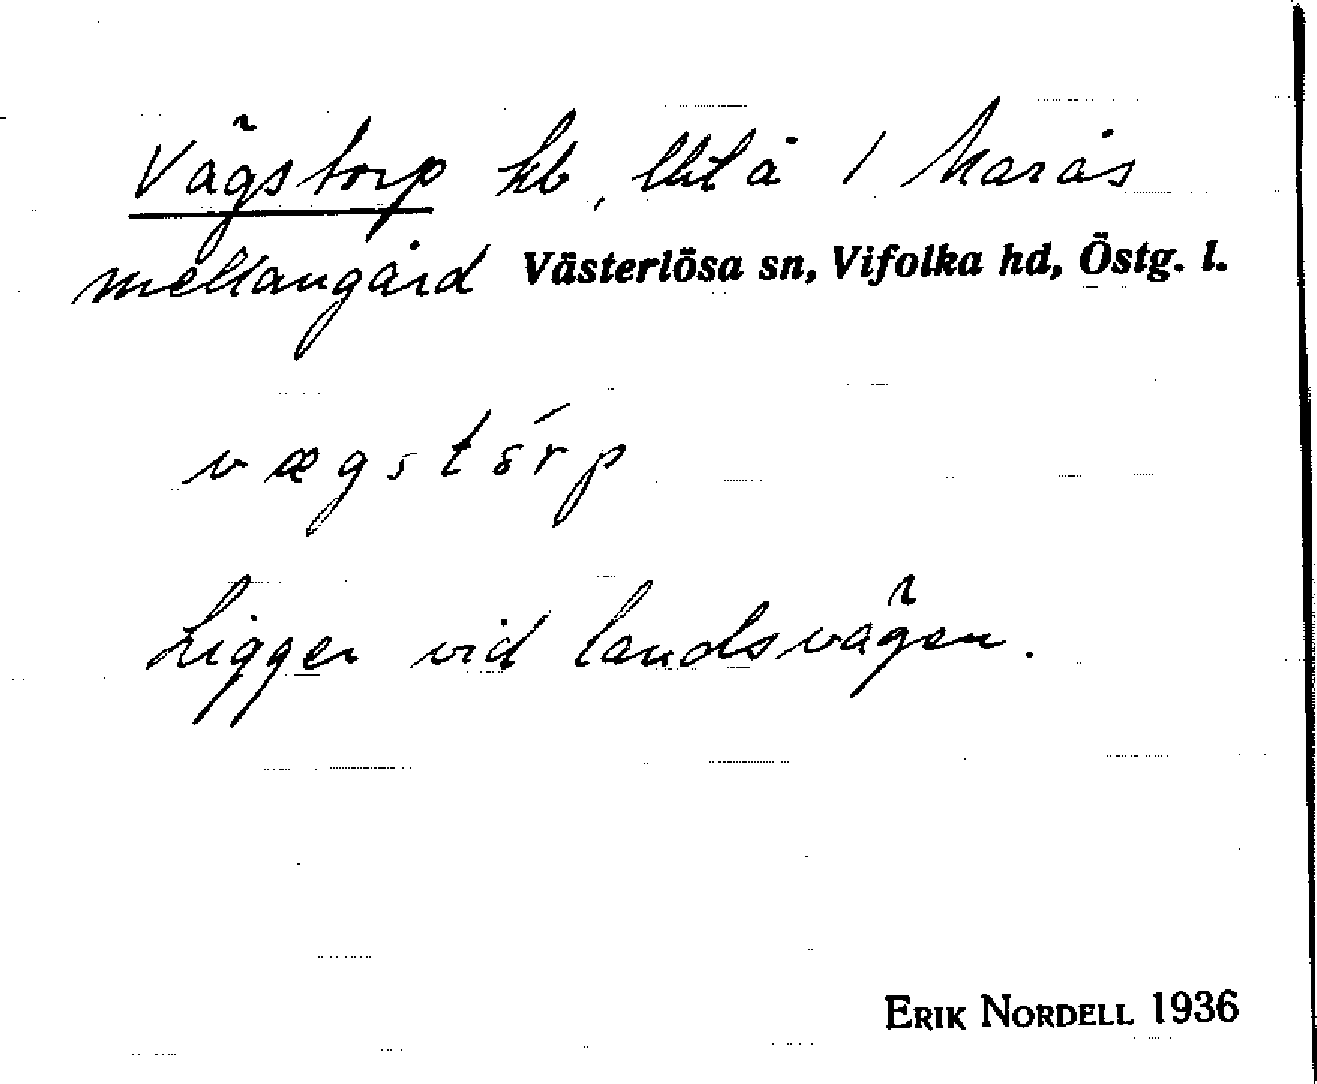 Vägstorp hb, lht å 1 Marås
mellangård Västerlösa sn, Vifolka hd, Östg. l.
vægstórp
Ligger vid landsvägen.
ERIK NORDELL 1936